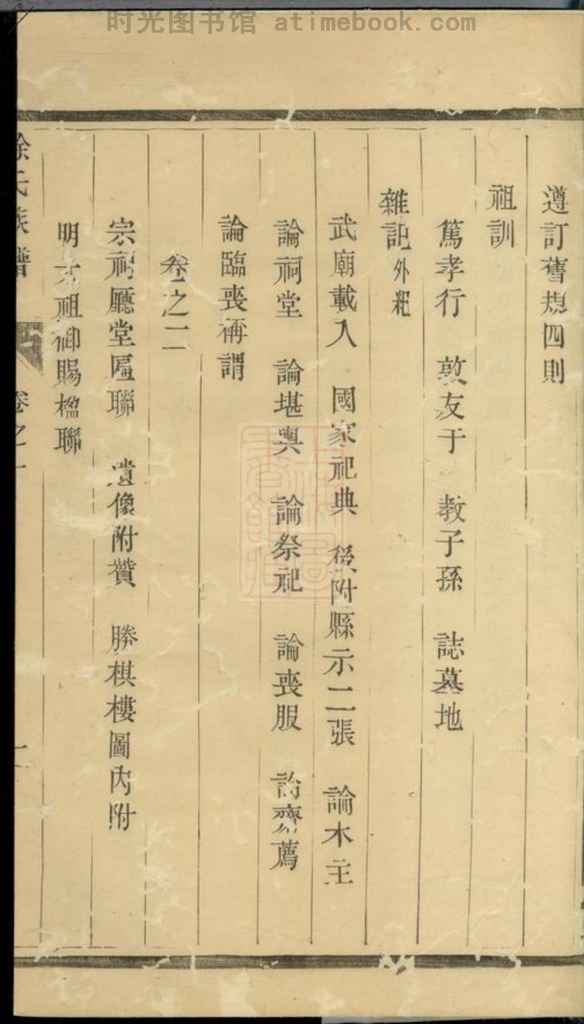 时光图书馆 atimebook.com
遵訂舊規四則
祖訓
篤孝行 敦友于 教子孫 誌墓地
雜記外紀
武廟載入 國家祀典 後附縣示二張 論木主
論祠堂 論堪輿 論祭祀 論喪服 論齋薦
論臨喪稱謂
卷之二
宗祠廳堂匾聯 遺像附贊 勝棋樓圖內附
明太祖御賜楹聯
徐氏族譜 卷之一